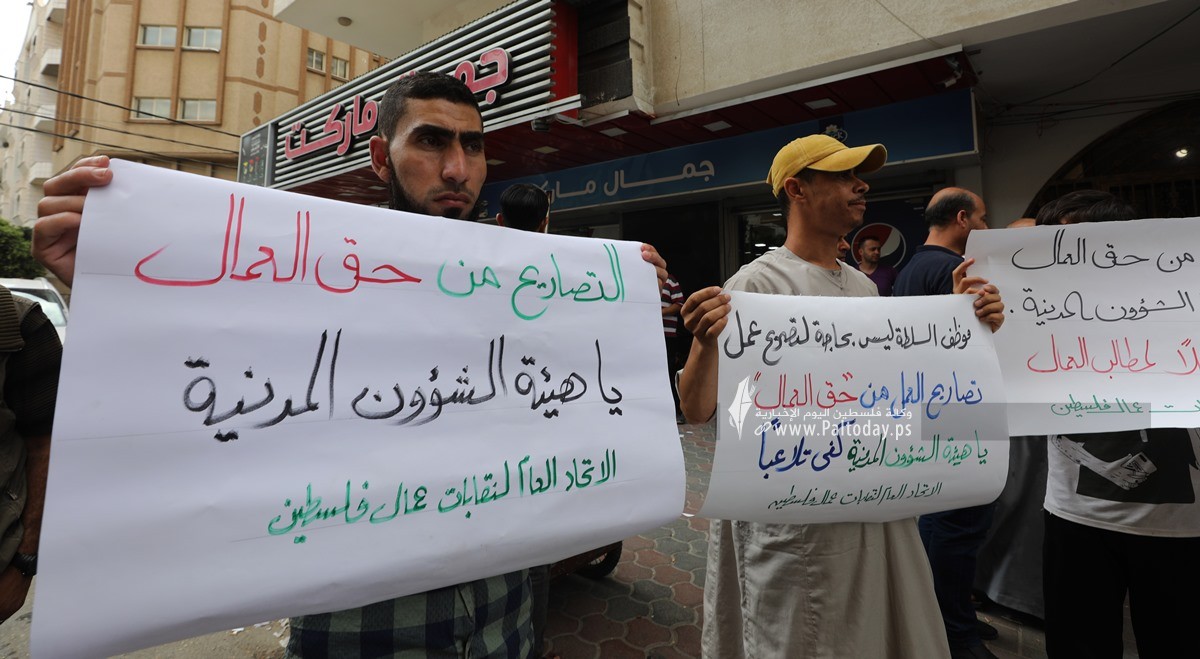 جمال ماركت
جمال ماركت
التصاريح من حق العمال
يا هيئة الشؤون المدنية
الاتحاد العام لنقابات عمال فلسطين
موظف السلطة ليس بحاجة لتصريح عمل
تصاريح العمل من "حق العمال"
يا هيئة الشؤون المدنية كفى تلاعباً
الاتحاد العام لنقابات عمال فلسطين
من حق العمال
الشؤون المدنية.
لمطالب العمال
عمال فلسطين
وكالة فلسطين اليوم الإخبارية
www.Paltoday.ps